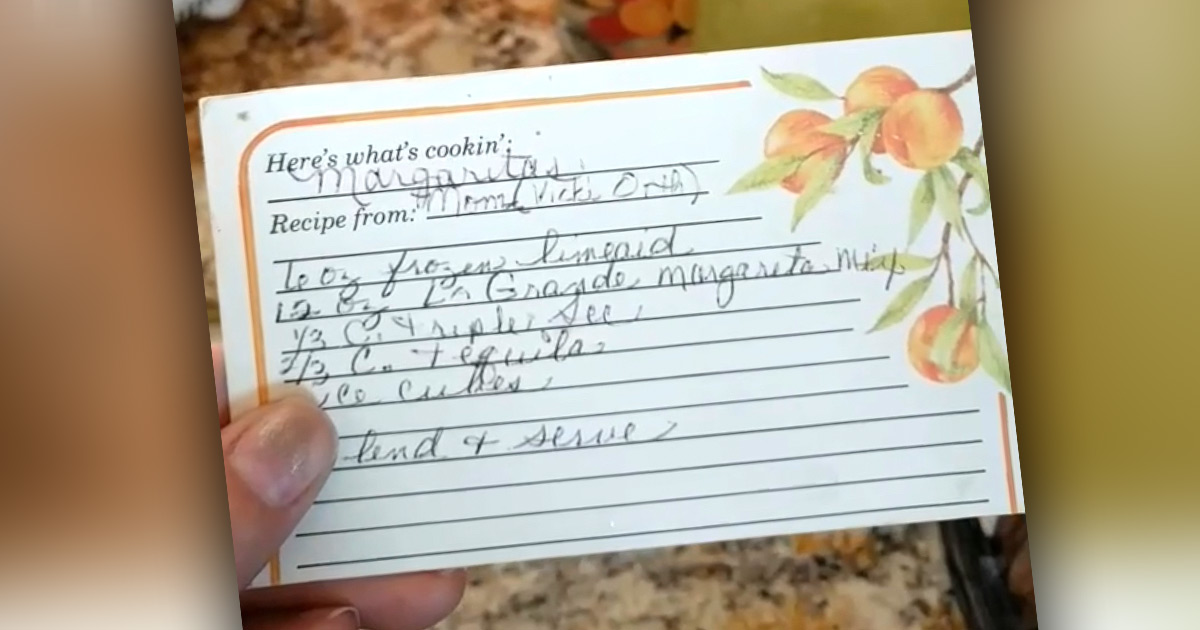 Here's what's cookin':
Margaritas
Recipe from: Mom (Vicki Orth)
6 oz frozen limeaid
12 oz La Grande margarita mix
1/3 C. triple sec
2/3 C. tequila
ice cubes
lend & serve